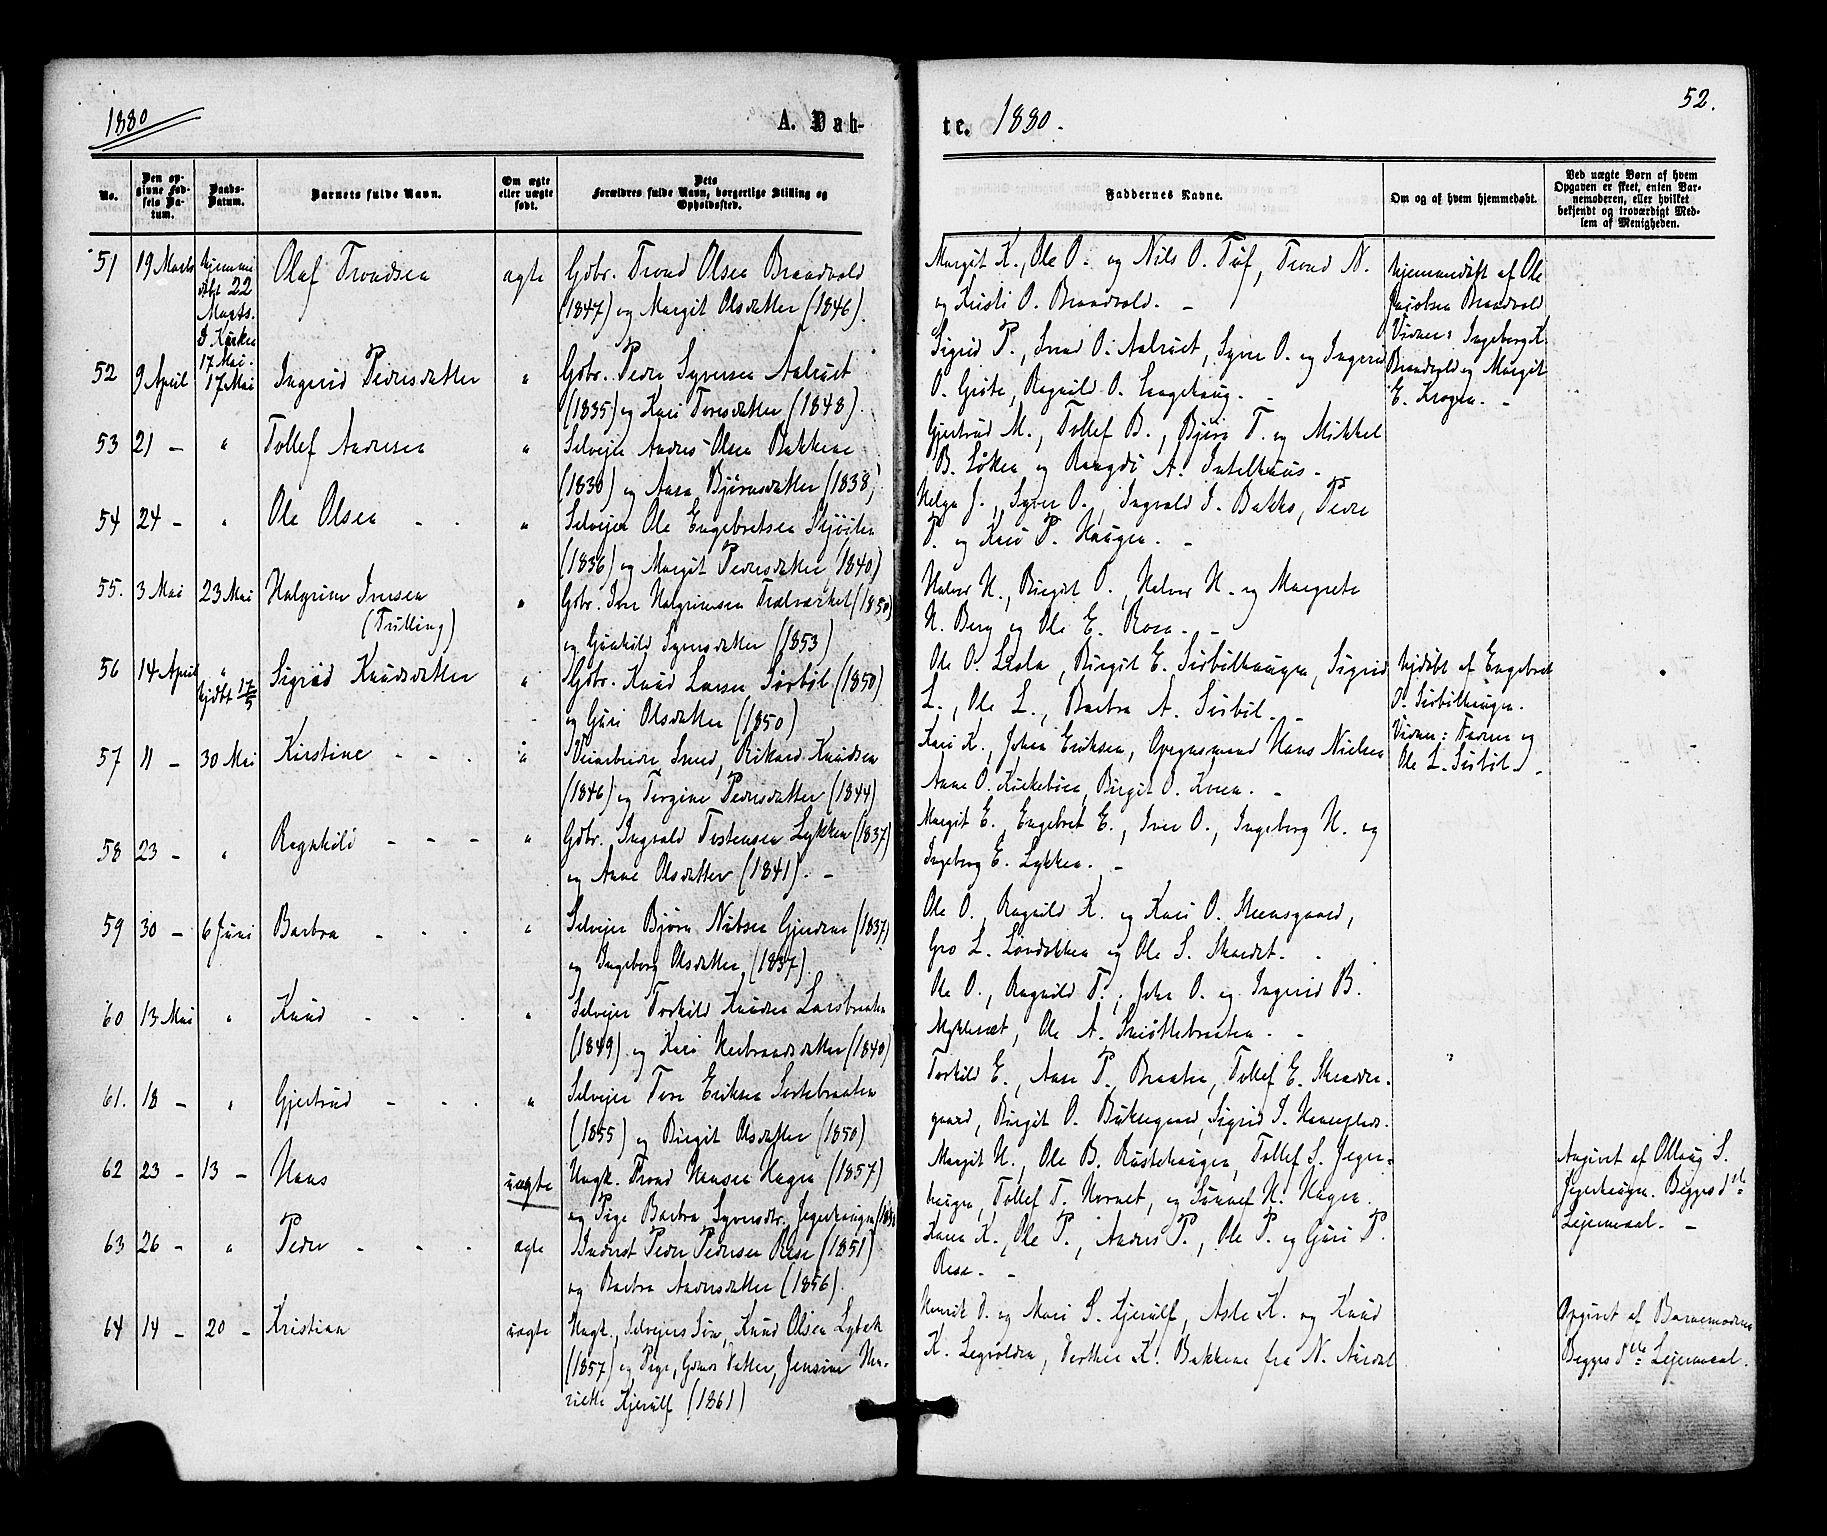 1880
A. Døb-
te. 1880.
52.
No.
Den opginne Fødsels Datum.
Daabs-Datum.
Barnets fulde Navn.
Om ægte eller uægte født.
Dets Forældres fulde Navn, borgerlige Stilling og Opholdssted.
Faddernes Navne.
Om og af hvem hjemmedøbt.
Ved uægte Børn af hvem Opgaven er skeet, enten Barnemoderen, eller hvilket bekjendt og troværdigt Medlem af Menigheden.
51 19 Marts Hjemmedøbt 22 Marts. I Kirken 17 Mai. Olaf Trondsen ægte Gdbr. Trond Olsen Brandvold
(1847) og Margit Olsdatter (1846).
Margit K., Ole O. og Nils O. Tuf, Trond N.
og Kristi O. Brandvold. –
Hjemmedøbt af Ole
Jacobsen Brandvold
Vidner: Ingeborg K.
Brandvold og Margit
E. Krogen. –
52 9 April 17 Mai Ingerid Pedersdatter " Gdbr. Peder Syversen Aalrust
(1835) og Kari Toresdatter (1848).
Sigrid P., Svend O. Aalrust, Syver O. og Ingerid
O. Grøte, Ragnild O. Langehaug. –
53 21 – " Tollef Andersen " Selveier Anders Olsen Bakkene
(1830) og Aasa Bjørnsdatter (1838)
Gjertrud M., Tollef B., Bjørn T. og Mikkel
B. Løkken og Rangdi A. Intelhuus. –
54 24 – " Ole Olsen " Selveier Ole Engebretsen
(1836) og Margit Pedersdatter (1840)
Helga J., Syver O., Ingvald I. Bakko, Peder
P. og Kari P. Haugen. –
55. 3 Mai 23 Mai Halgrim Iversen " Gdbr. Iver Halgrimsen (1850)
(Tvilling)
og Gunhild Syversdatter (1853)
Halvor H., Birgit O., Halvor H. og Margrete
H. Berg og Ole E. Roen. –
56 14 April " hjdøbt 17/5 Sigrid Knudsdatter " Gdbr. Knud Larsen Sørbøl (1850)
og Guri Olsdatter (1850)
Ole O. Lisla, Birgit E. Sørbølhaugen, Sigrid
L., Ole L., Barbra A. Sørbøl. –
Hjdøbt af Engebret
O. Sørbølhaugen.
Vidner: Faderen og
Ole L. Sørbøl. –
57 11 – 30 Mai Kirstine " Veiarbeider, Smed, Rikard Knudsen
(1846) og Torgine Pedersdatter (1844)
Kari K., Johan Eriksen, Opsynsmand Hans Nielsen
Anne O. Kirkebøen, Birgit O. Kroen. –
58 23 – " Ragnhild " Gdbr. Ingvald Torstensen Lykken (1837)
og Anne Olsdatter (1841). –
Margit E., Engebret E., Iver O., Ingeborg H. og
Ingeborg E. Lykken. –
59 30 – 6 Juni Barbra " Selveier Bjørn Nilsen Gjerdene (1837)
og Ingeborg Olsdatter (1837).
Ole O., Ragnild K. og Kari O. Steensgaard,
Gro L. og Ole S. Skardet.
60 13 Mai " Knud " Selveier Torkild Knudsen Larsbraaten
(1849) og Kari Herbrandsdatter (1840)
Ole O., Ragnild T., John O. og Ingerid B.
Myklesæt, Ole A. Smøttebraaten. –
61. 18 – " Gjertrud " Selveier Tore Eriksen Sortebraaten
(1855) og Birgit Olsdatter (1850)
Torkild E., Aase P. Braaten, Tollef E.
gaard, Birgit O. Sigrid S.
62 23 – 13 – Hans uægte Ungk. Trond Hansen Hagen (1857)
og Pige Barbra Syversdtr. Jegerhaugen
Margit H., Ole B. Rustehaugen, Tollef S. Jeger-
haugen, Tollef T. og Gunnel H. Hagen.
Angivet af Ollaug S.
Jegerhaugen. Begges 1ste
Leiermaal. –
63 26 – " Peder ægte Inderst Peder Pedersen Rese (1851)
og Barbra Andersdatter (1856).
Karen K., Ole P., Anders P., Ole P. og Guri P.
Rese. –
64 14 – 20 – Kristian uægte Ungk., Selveiers Søn, Knud Olsen
(1857) og Pige, Gdmds Datter, Jensine Hen-
riette Kjerulf (1861)
Henrik O. og Mari S. Kjerulf, Asle K. og Knud
K. Dorthea K. Bakkene fra N. Aurdal
Opgivet af Barnemoderen
Begges 1ste Leiermaal.